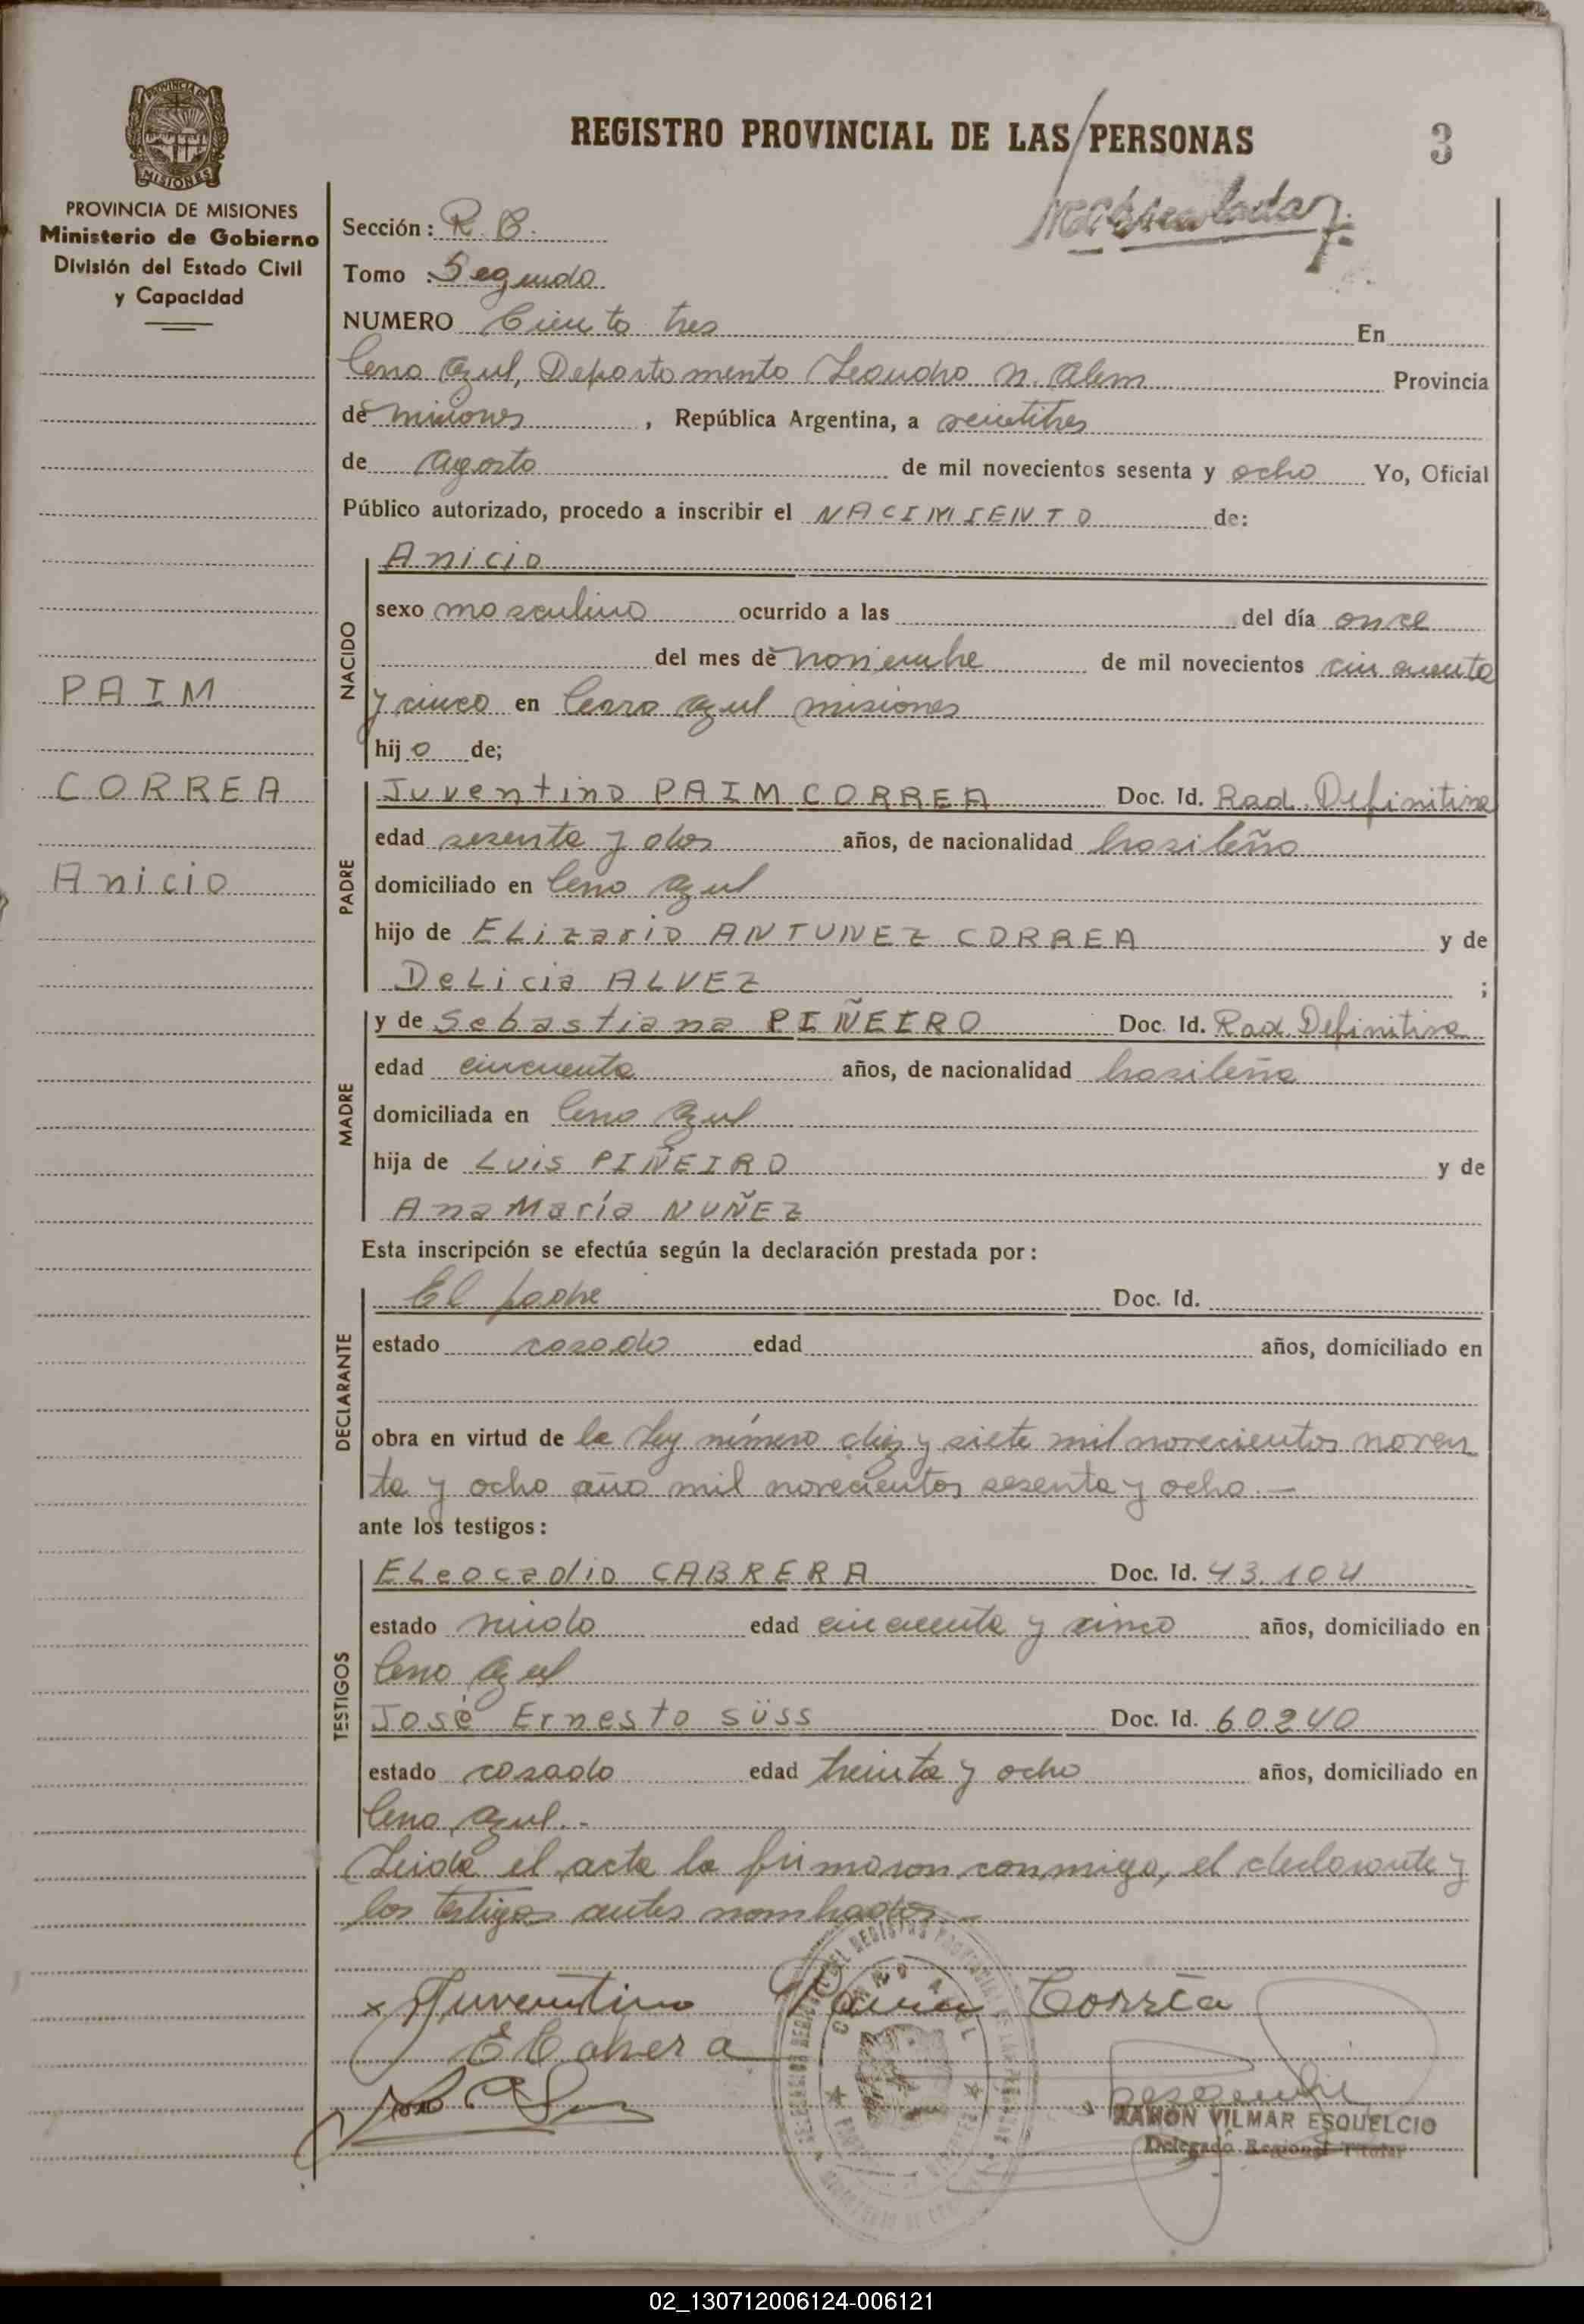 REGISTRO PROVINCIAL DE LAS PERSONAS
3
PROVINCIA DE MISIONES
Ministerio de Gobierno
División del Estado Civil
y Capacidad
Sección: R. B.
Tomo : Segundo
NUMERO Ciento tres En
Cerro Azul, Departamento Leandro N. Alem Provincia
de misiones , República Argentina, a veintitres
de agosto de mil novecientos sesenta y ocho Yo, Oficial
Público autorizado, procedo a inscribir el NACIMIENTO de:
NACIDO
Anicio
sexo masculino ocurrido a las del día once
del mes de noviembre de mil novecientos cincuenta
y cinco en Cerro Azul misiones
hijo de;
PAIM
CORREA
Anicio
PADRE
Juventino PAIM CORREA Doc. Id. Rad. Definitiva
edad sesenta y dos años, de nacionalidad brasileño
domiciliado en Cerro Azul
hijo de ELizario ANTUNEZ CORREA y de
DeLicia ALVEZ ;
MADRE
y de Sebastiana PIÑEIRO Doc. Id. Rad. Definitiva
edad cincuenta años, de nacionalidad brasileña
domiciliada en Cerro Azul
hija de Luis PIÑEIRO y de
Ana María NUÑEZ
Esta inscripción se efectúa según la declaración prestada por:
DECLARANTE
El padre Doc. Id.
estado casado edad años, domiciliado en
obra en virtud de la Ley número diez y siete mil novecientos noven
ta y ocho año mil novecientos sesenta y ocho.—
ante los testigos:
TESTIGOS
ELeocadio CABRERA Doc. Id. 43.104
estado viudo edad cincuenta y cinco años, domiciliado en
Cerro Azul
José Ernesto SÜSS Doc. Id. 60240
estado casado edad treinta y ocho años, domiciliado en
Cerro Azul.-
Leida el acta la firmaron conmigo, el declarante y
los testigos antes nombrados.—
x Juventino Paim Corrêa
E Cabrera
RAMON VILMAR ESQUELCIO
Delegado Regional Titular
02_130712006124-006121